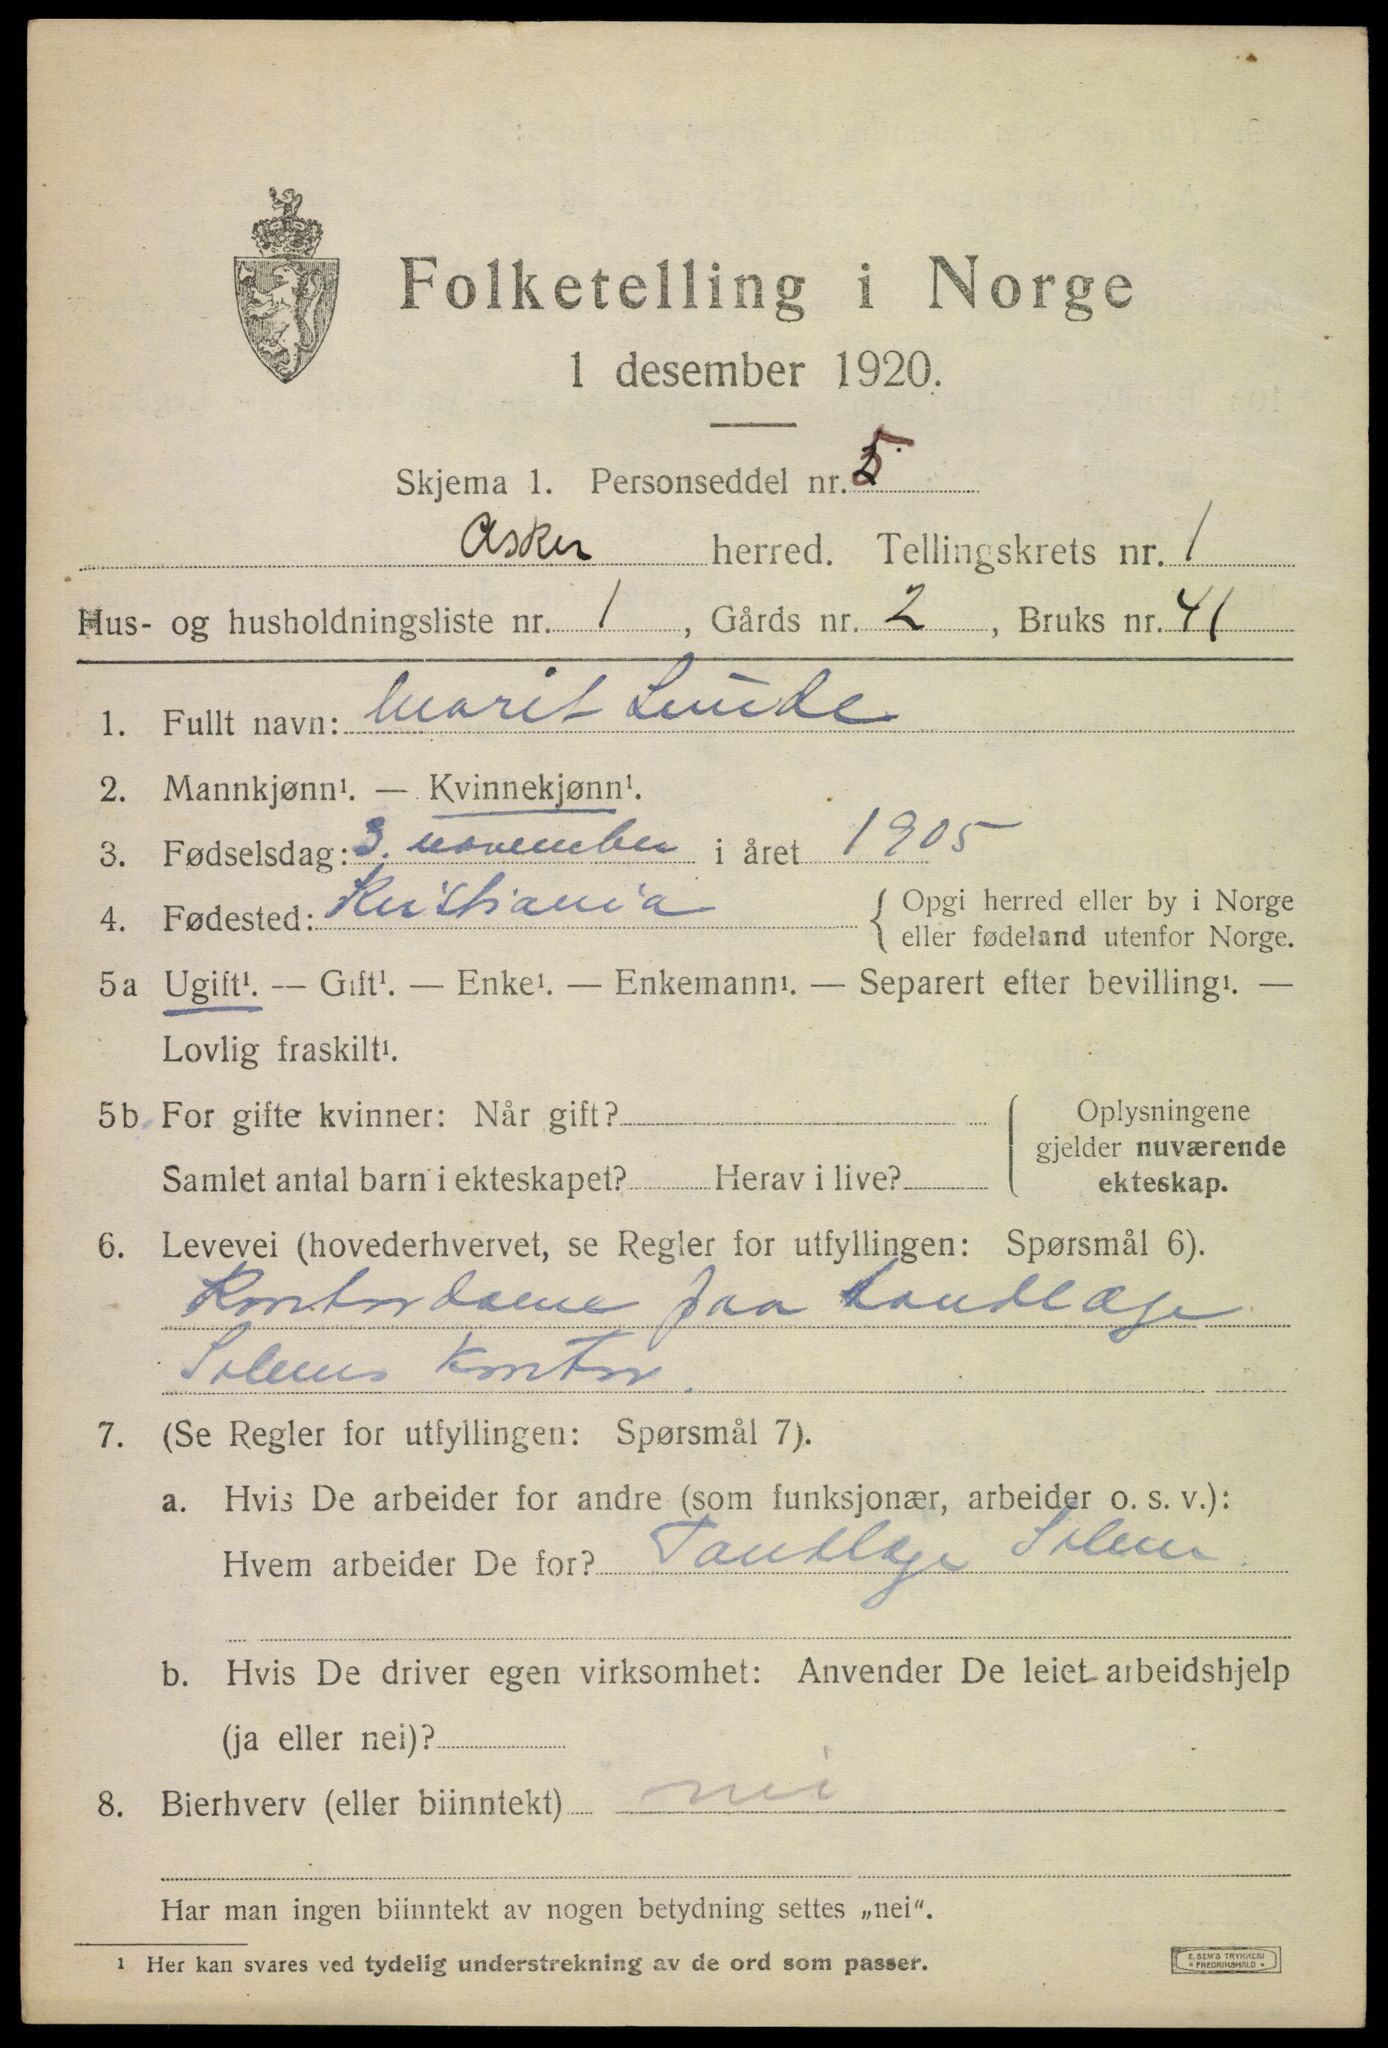 Folketelling i Norge
1 desember 1920.
Skjema 1. Personseddel nr. 5
Asker herred. Tellingskrets nr. 1
Hus- og husholdningsliste nr. 1, Gårds nr. 2, Bruks nr. 41
1. Fullt navn: Marit Lunde
2. Mannkjønn¹. — Kvinnekjønn¹.
3. Fødselsdag: 3. november i året 1905
4. Fødested: Kristiania { Opgi herred eller by i Norge
eller fødeland utenfor Norge.
5a Ugift¹. — Gift¹. — Enke¹. — Enkemann¹. — Separert efter bevilling¹. —
Lovlig fraskilt¹.
5b For gifte kvinner: Når gift?
Samlet antal barn i ekteskapet? Herav i live?
Oplysningene
gjelder nuværende
ekteskap.
6. Levevei (hovederhvervet, se Regler for utfyllingen: Spørsmål 6).
Kontordame paa tandlæge
Solems Kontor.
7. (Se Regler for utfyllingen: Spørsmål 7).
a. Hvis De arbeider for andre (som funksjonær, arbeider o. s. v.):
Hvem arbeider De for? Tandlæge Solem
b. Hvis De driver egen virksomhet: Anvender De leiet arbeidshjelp
(ja eller nei)?
8. Bierhverv (eller biinntekt) nei
Har man ingen biinntekt av nogen betydning settes „nei“.
¹ Her kan svares ved tydelig understrekning av de ord som passer.
E. SEM'S TRYKKERI
* FREDRIKSHALD *